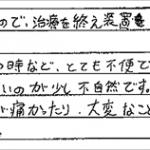 ので、治療を終え装置を
の時など、とても不便で
いのが少し不自然です。
が痛かったり、大変なこと
。